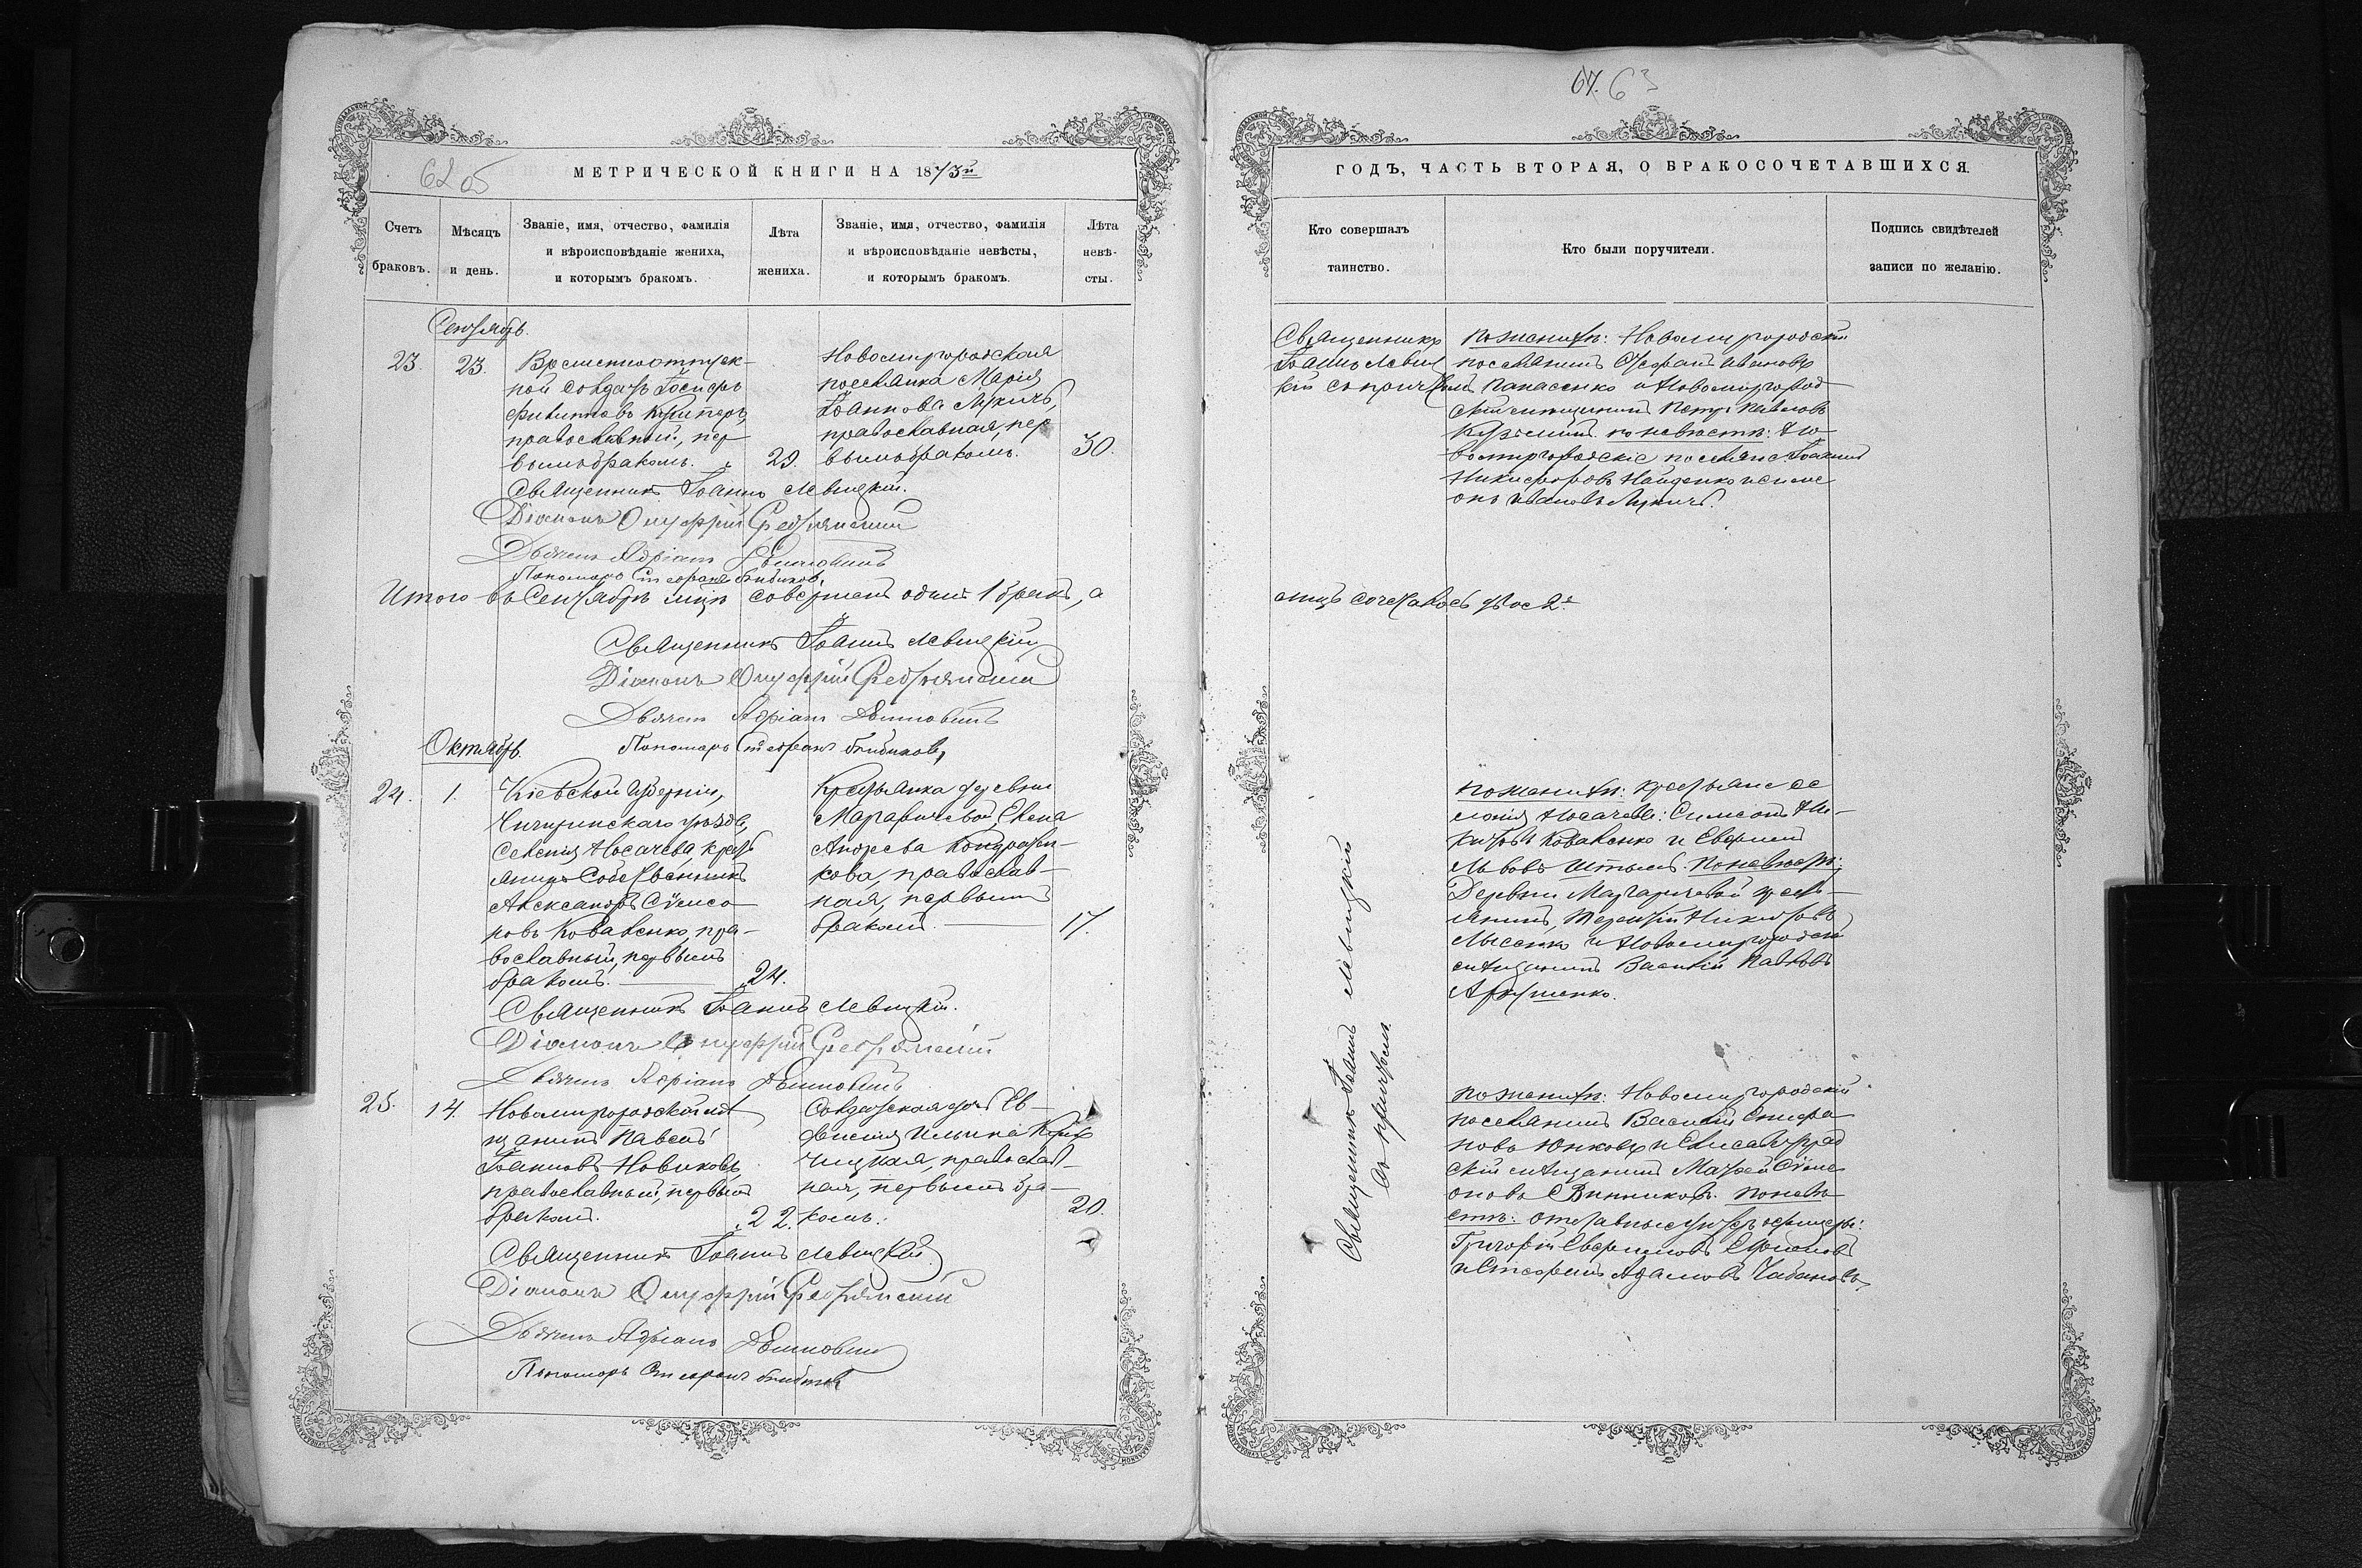 62 об
МЕТРИЧЕСКОЙ КНИГИ НА 1873й
Счетъ браковъ.
Мѣсяцъ и день.
Званіе, имя, отчество, фамилія
и вѣроисповѣданіе жениха,
и которымъ бракомъ.
Лѣта
жениха.
Званіе, имя, отчество, фамилія
и вѣроисповѣданіе невѣсты,
и которымъ бракомъ.
Лѣта
невѣ-
сты.
Сентябрь.
23. 23.
Временно отпуск-
ной солдатъ Іосифъ
Филипповъ
православный, пер-
вымъ бракомъ. 29.
Новомиргородская
поселянка Марія
Іоаннова Лукичъ,
православная, пер
вымъ бракомъ. 30.
Священникъ Іоаннъ Левицкій.
Діаконъ Онуфрій
Дьячекъ Адріанъ
Пономарь Стефанъ Бибиковъ,
Итого въ Сентябрѣ мцѣ совершенъ одинъ 1 бракъ, а
Священникъ Іоаннъ Левицкій
Діаконъ Онуфрій
Дьячекъ Адріанъ
Пономарь Стефанъ Бибиковъ,
Октябрь.
24. 1.
Кіевской губерніи,
Чигиринскаго уѣзда,
Селенія Носачева крест
янинъ Собственникъ
Александръ Сѵмео
новъ Коваленко, пра-
вославный, первымъ
бракомъ. 24.
Крестьянка деревни
Маргаричевой, Елена
Андреева Кондрать-
кова, православ-
ная, первымъ
бракомъ. 17.
Священникъ Іоаннъ Левицкій.
Діаконъ Онуфрій
Дьячекъ Адріанъ
25. 14.
Новомиргородскій мѣ
щанинъ Павелъ
Іоанновъ Новиковъ,
православный, первымъ
бракомъ. 22.
Солдатская дочь Ев-
фимія Ильина
православ-
ная, первымъ бра-
комъ. 20.
Священникъ Іоаннъ Левицкій.
Діаконъ Онуфрій
Дьячекъ Адріанъ
Пономарь Стефанъ Бибиковъ
63
ГОДЪ, ЧАСТЬ ВТОРАЯ, О БРАКОСОЧЕТАВШИХСЯ.
Кто совершалъ
таинство.
Кто были поручители.
Подпись свидѣтелей
записи по желанію.
Священникъ
Іоаннъ Левиц
кій съ причтомъ
По женихѣ: Новомиргородскій
поселянинъ Стефанъ Ивановъ
Панасенко и Новомиргород
скій мѣщанинъ Петръ Павловъ
по невѣстѣ: Но-
вомиргородскіе поселяне: Іоаннъ
Никифоровъ Найденко и Симе
онъ Ивановъ Лукичъ.
лицъ сочеталось двое 2е
Священникъ Іоаннъ Левицкій
съ причтомъ
По женихѣ: крестьяне се
ленія Носачева: Симеонъ Ни-
китовъ Коваленко и Евфимій
Львовъ по невѣстѣ:
Деревни Маргаричевой кресть-
янинъ, Терентій Никитовъ
Лысенко и Новомиргородскій
мѣщанинъ Василій Павловъ
По женихѣ: Новомиргородскій
поселянинъ Василій Епифа
новъ Юнковъ и Елисаветград
скій мѣщанинъ Матфей Сѵме
оновъ Винниковъ. по невѣ
стѣ: отставные унтеръ офицеры:
Григорій Евфимовъ
и Стефанъ Адамовъ Чабановъ,